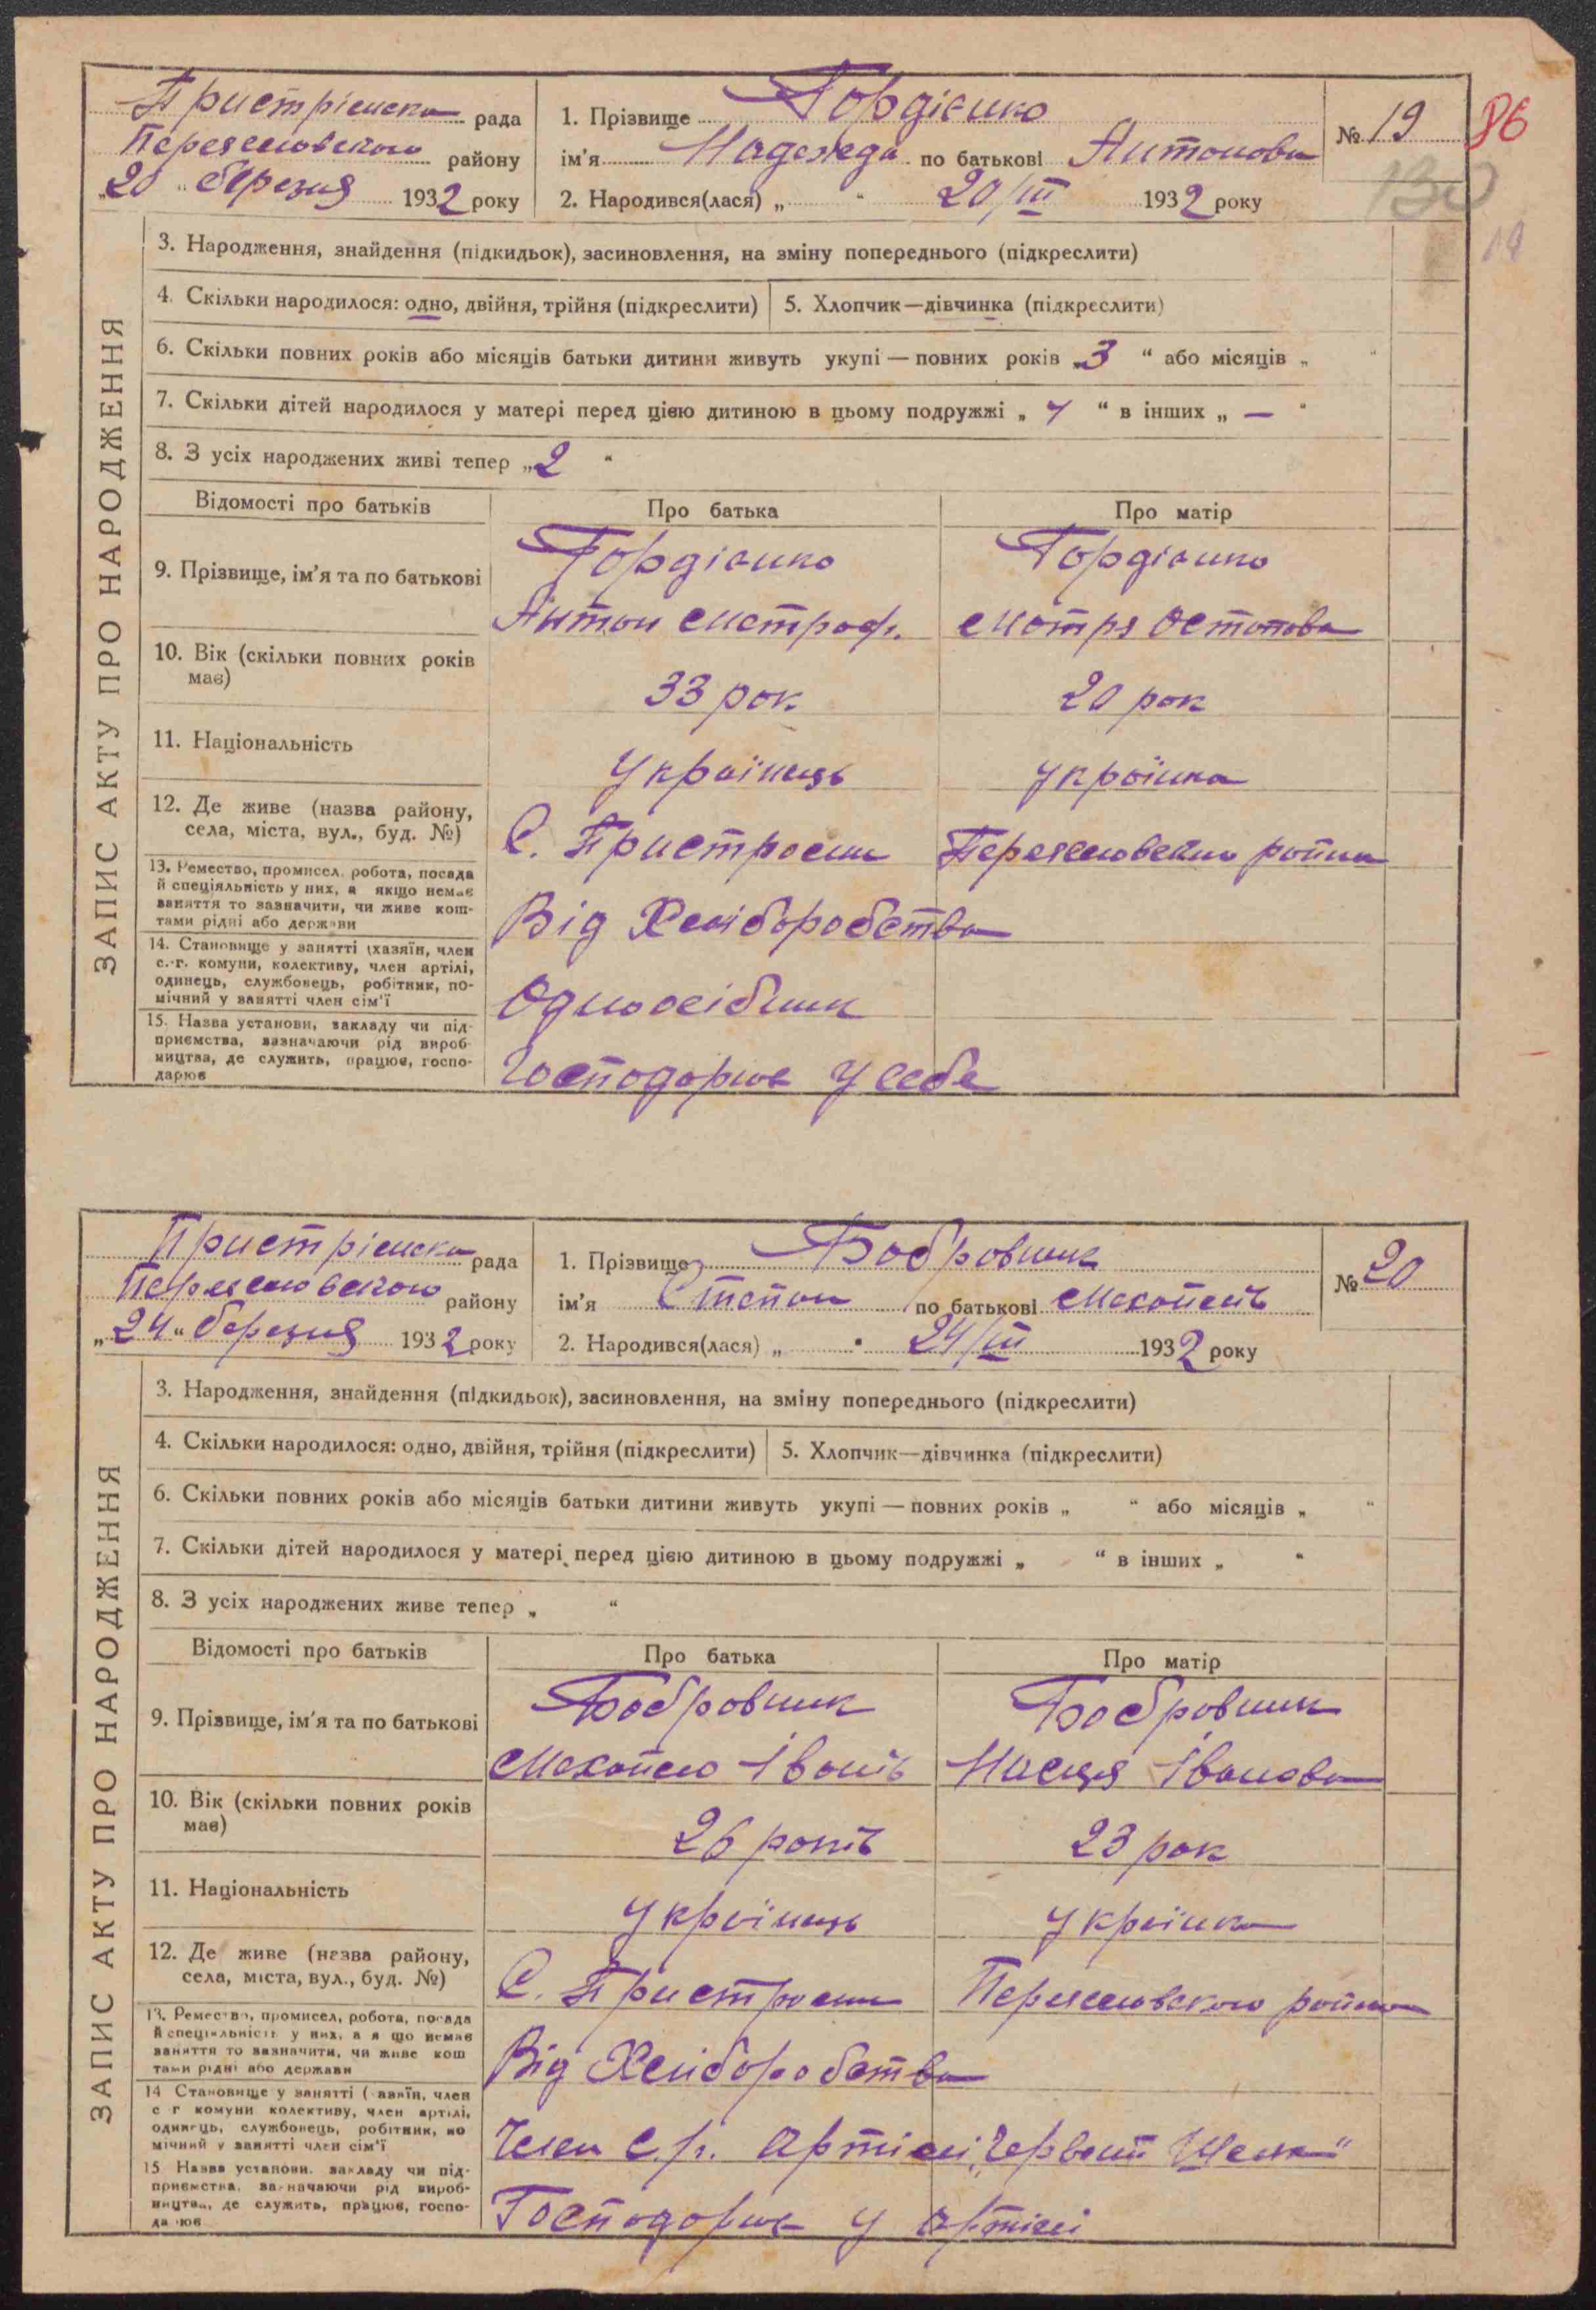 Пристрімська рада
Переяславського району
„20“ березня 1932 року
1. Прізвище Гордієнко
ім’я Надежда по батькові Антонова
2. Народився(лася) „ “ 20/III 1932 року
№ 19
86
130
19
ЗАПИС АКТУ ПРО НАРОДЖЕННЯ
3. Народження, знайдення (підкидьок), засиновлення, на зміну попереднього (підкреслити)
4. Скільки народилося: одно, двійня, трійня (підкреслити) 5. Хлопчик—дівчинка (підкреслити)
6. Скільки повних років або місяців батьки дитини живуть укупі — повних років „3“ або місяців „ “
7. Скільки дітей народилося у матері перед цією дитиною в цьому подружжі „ “ в інших „ — “
8. З усіх народжених живі тепер „2 “
Відомості про батьків Про батька Про матір
9. Прізвище, ім’я та по батькові
Гордієнко Гордієнко
Антон Митроф. Мотря Остапова
10. Вік (скільки повних років
має)
33 рок 20 рок
11. Національність
Українець Українка
12. Де живе (назва району,
села, міста, вул., буд. №)
С. Пристроми Переяславського район
13. Ремество, промисел, робота, посада
й спеціяльність у них, а якщо немає
заняття то зазначити, чи живе кош-
тами рідні або держави
Від Хліборобства
14. Становище у занятті (хазяїн, член
с.-г. комуни, колективу, член артілі,
одинець, службовець, робітник, по-
мічний у занятті член сім’ї
Одноосібник
15. Назва установи, закладу чи під-
приємства, зазначаючи рід вироб-
ництва, де служить, працює, госпо-
дарює
Господарює у себе
Пристрімська рада
Переяславського району
„24“ березня 1932 року
1. Прізвище Бобровник
ім’я Степан по батькові Михайлів
2. Народився(лася) „ “ 24/III 1932 року
№ 20
ЗАПИС АКТУ ПРО НАРОДЖЕННЯ
3. Народження, знайдення (підкидьок), засиновлення, на зміну попереднього (підкреслити)
4. Скільки народилося: одно, двійня, трійня (підкреслити) 5. Хлопчик—дівчинка (підкреслити)
6. Скільки повних років або місяців батьки дитини живуть укупі — повних років „ “ або місяців „ “
7. Скільки дітей народилося у матері перед цією дитиною в цьому подружжі „ “ в інших „ “
8. З усіх народжених живе тепер „ “
Відомості про батьків Про батька Про матір
9. Прізвище, ім’я та по батькові
Бобровник Бобровник
Михайло Іванів Настя Іванова
10. Вік (скільки повних років
має)
26 років 23 рок
11. Національність
Українець Українка
12. Де живе (назва району,
села, міста, вул., буд. №)
С. Пристроми Переяславського район
13. Ремество, промисел, робота, посада
й спеціяльність у них, а якщо немає
заняття то зазначити, чи живе кош
тами рідні або держави
Від Хліборобства
14 Становище у занятті (хазяїн, член
с г комуни колективу, член артілі,
одинець, службовець, робітник, по
мічний у занятті член сім’ї
Член с.г. Артілі „Червоний Шлях“
15 Назва установи, закладу чи під-
приємства, зазначаючи рід вироб-
ництва, де служить, працює, госпо-
дарює
Господарює у артілі